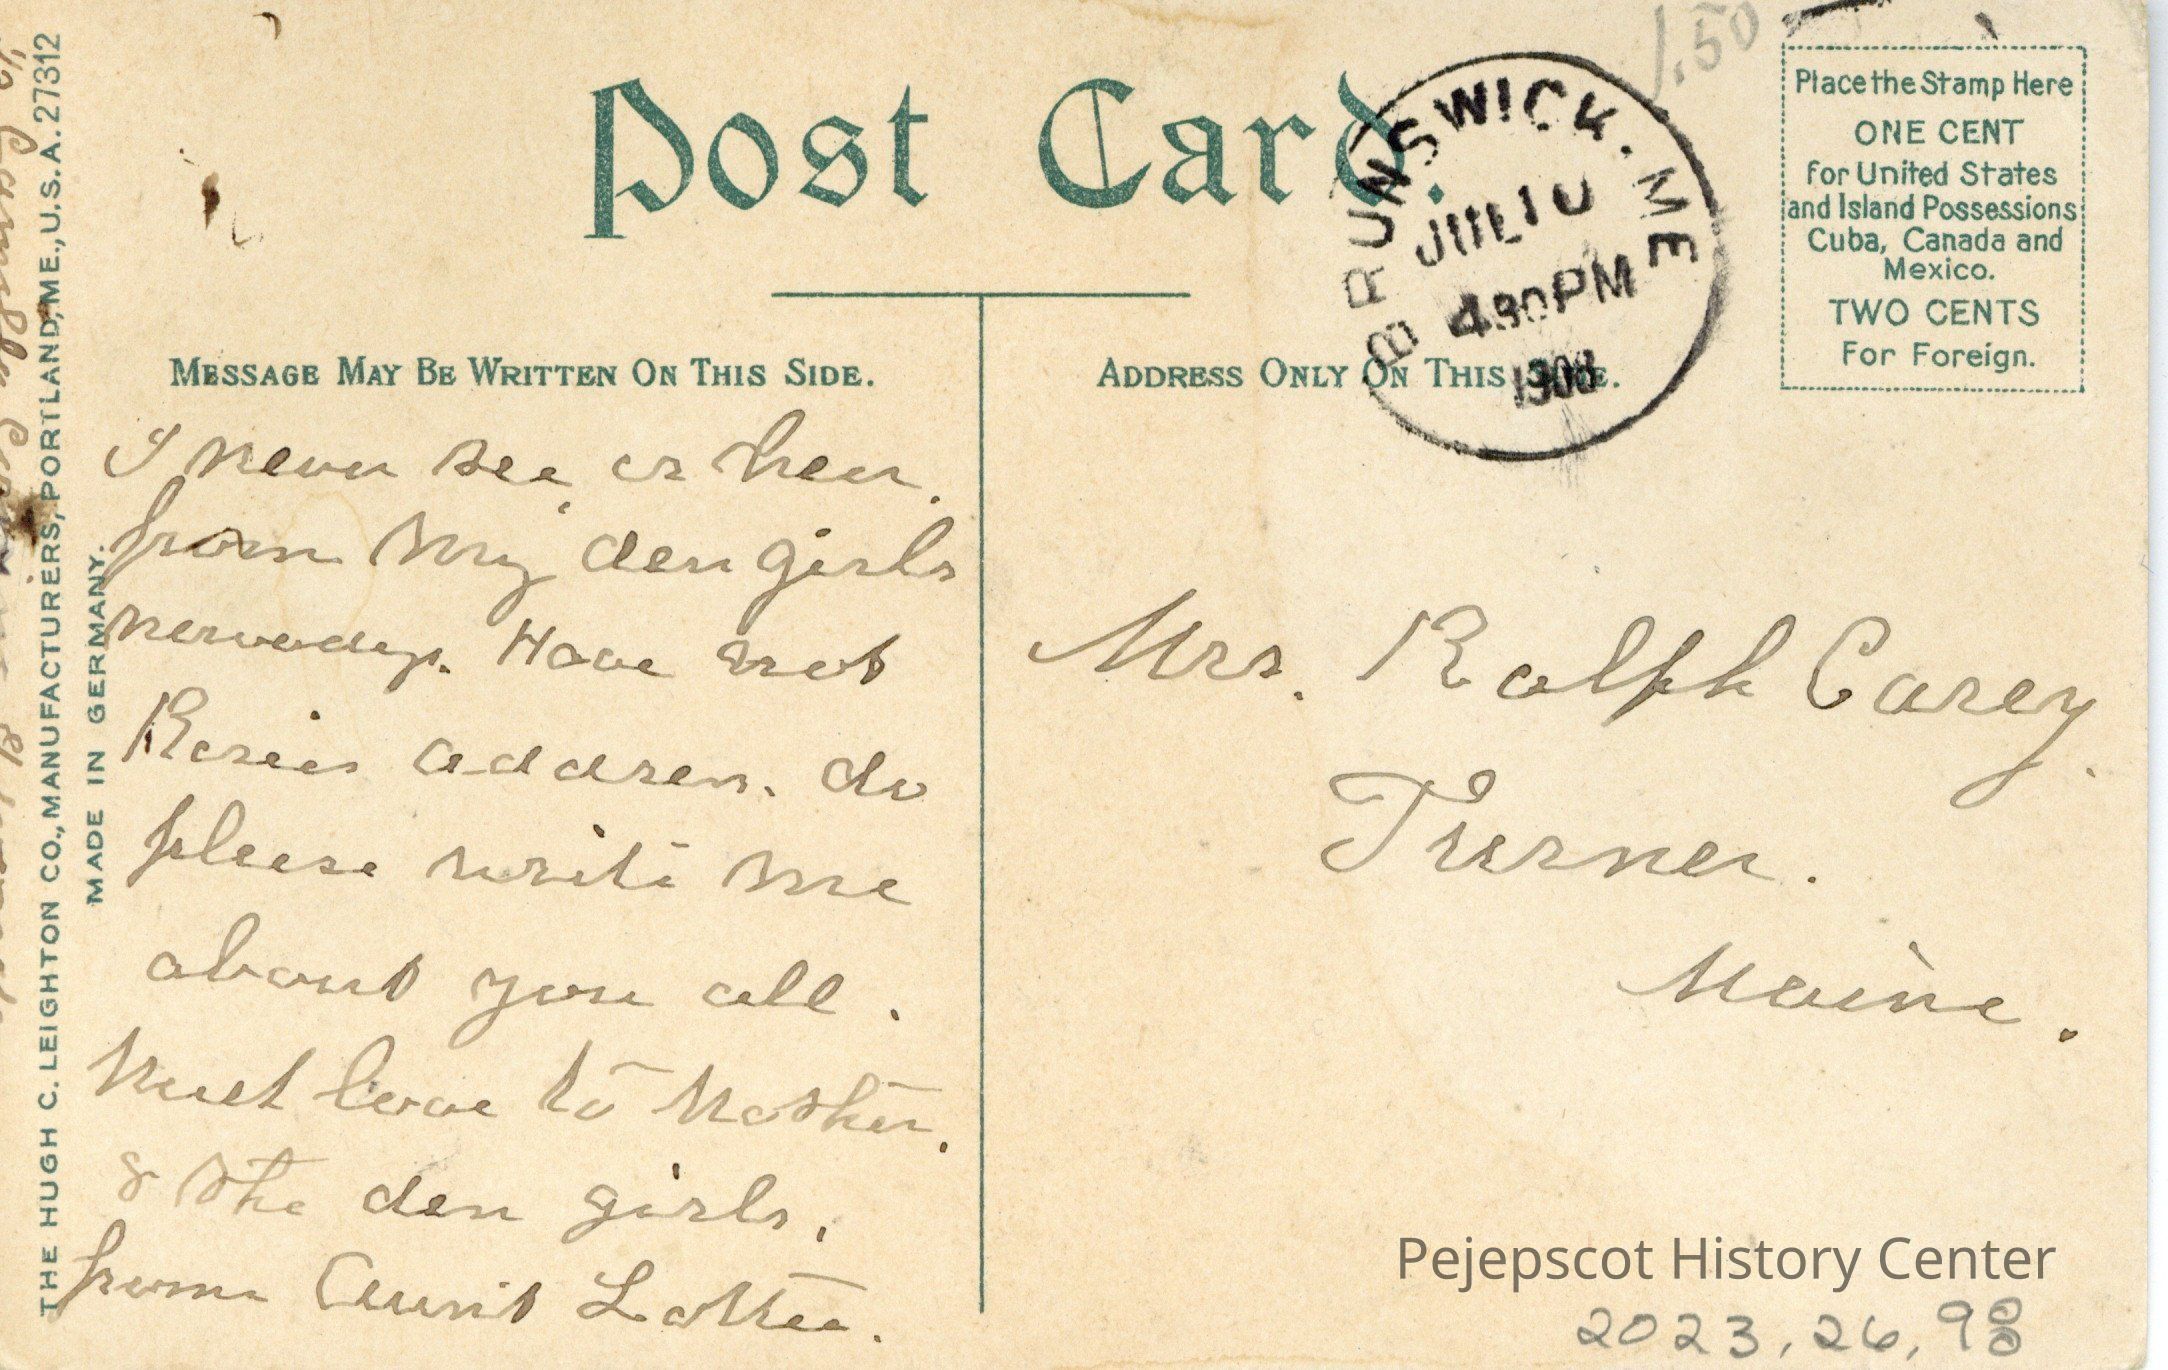 Post Card.
1.50
BRUNSWICK. ME
JUL 10
430 PM
1908
Place the Stamp Here
ONE CENT
for United States
and Island Possessions
Cuba, Canada and
Mexico.
TWO CENTS
For Foreign.
MESSAGE MAY BE WRITTEN ON THIS SIDE.
ADDRESS ONLY ON THIS SIDE.
THE HUGH C. LEIGHTON CO., MANUFACTURERS, PORTLAND, ME., U.S.A. 27312
MADE IN GERMANY.
I never see or hear
from my dear girls
nowadays. Have not
Rosies address. do
please write me
about you all.
Much love to Mother.
& the dear girls.
from Aunt Lottie.
Mrs. Ralph Carey.
Turner.
Maine.
Pejepscot History Center
2023.26.98